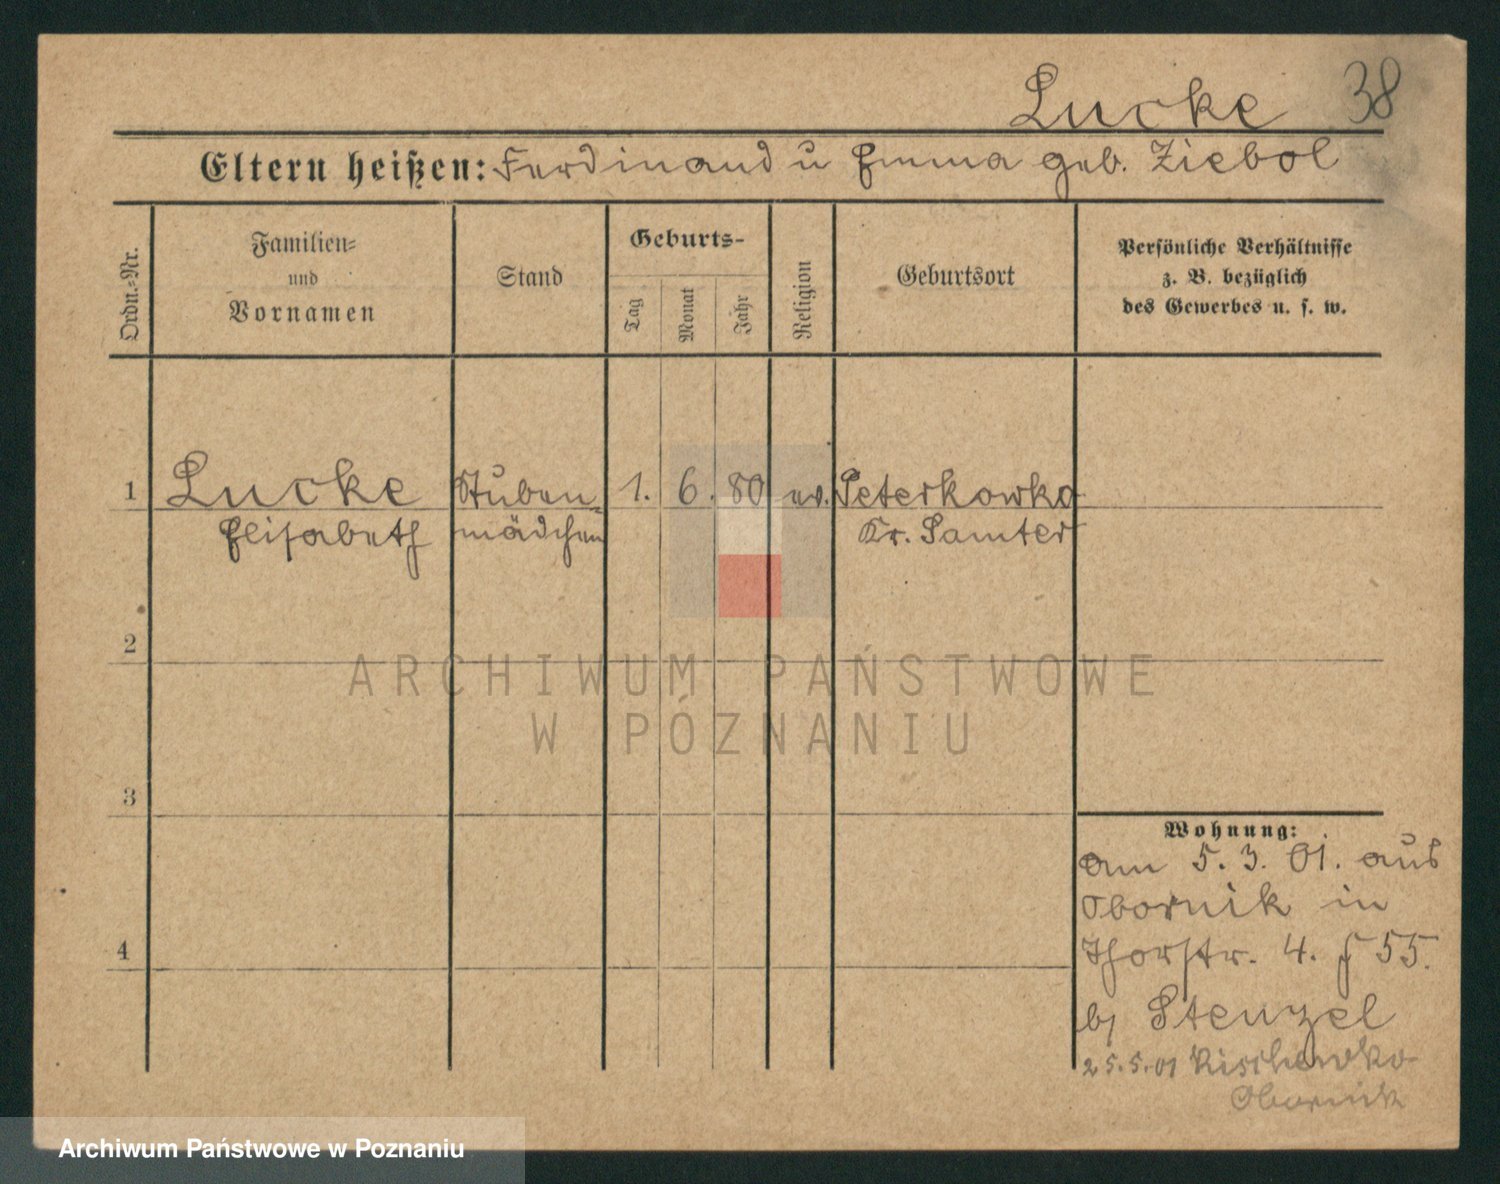 Lucke 38
Eltern heißen: Ferdinand u Emma geb. Ziebol
Ordn.-Nr.
Familien-
und
Vornamen
Stand
Geburts-
Tag
Monat
Jahr
Religion
Geburtsort
Persönliche Verhältnisse
z. B. bezüglich
des Gewerbes u. s. w.
1 Lucke Stuben- 1. 6. 80 ev. Peterkowko
Elisabeth mädchen Kr. Samter
2
ARCHIWUM PAŃSTWOWE
W POZNANIU
3
Wohnung:
am 5. 3. 01. aus
Obornik in
4 Thorstr. 4. 55.
bj Stenzel
25.5.01 Kischewko
Obornik
Archiwum Państwowe w Poznaniu